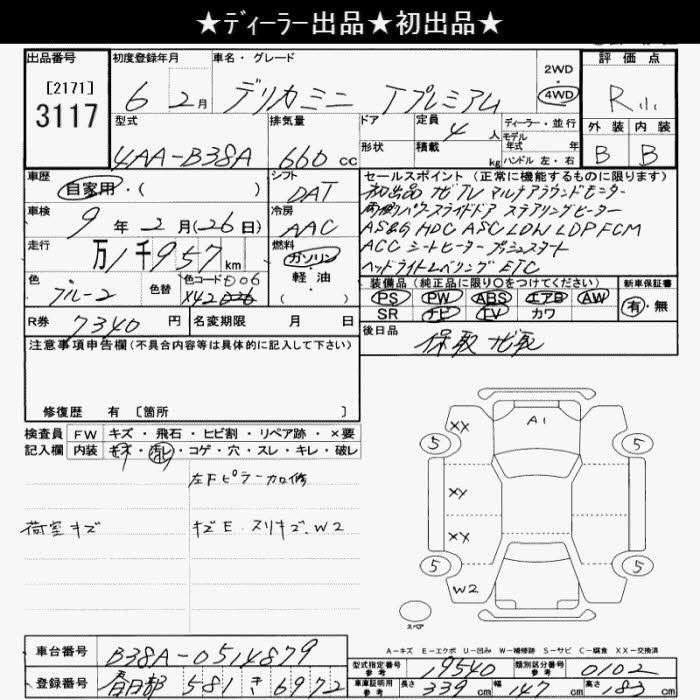 ★ディーラー出品★初出品★
出品番号 初度登録年月 車名・グレード 2WD 評価点
[2171] 6 2月 デリカミニ Tプレミアム 4WD R小
3117
型式 排気量 ドア 定員 4人 ディーラー・並行 外装 内装
モデル年式 年
4AA-B38A 660cc 形状 積載 kg ハンドル 左・右 B B
車歴 シフト セールスポイント(正常に機能するものに限ります)
自家用・( ) DAT 初出品 ナビ TV マルチアラウンドモニター
車検 冷房 両側パワースライドドア ステアリングヒーター
9年2月(26日) AAC AS&G HDC ASC LDW LDP FCM
走行 燃料 ACC シートヒーター プッシュスタート
万1千957km ガソリン・軽油 ヘッドライトレベリング ETC
色 色替 色コード ( ) 装備品(純正品に限り○をつけてください) 新車保証書
ブルー2 X42 D06 PS PW ABS エアB AW 有・無
SR ナビ TV カワ
R券 7340円 名変期限 月 日 後日品 保取 ナビ取
注意事項申告欄(不具合内容等は具体的に記入して下さい)
修復歴 有 [箇所 ]
検査員 FW キズ・飛石・ヒビ割・リペア跡・×要
記入欄 内装 キズ・汚レ・コゲ・穴・スレ・キレ・破レ
左Fピラー加修
荷室キズ キズE スリキズ、W2
A1
XX
5 5
XY
XX
5 5
W2
スペア
A-キズ E-エクボ U-凹み W-補修跡 S-サビ C-腐食 XX-交換済
車台番号 B38A-0514879
型式指定番号 参考 19540 類別区分番号 参考 0102
登録番号 春日部 581 き 6972
車庫証明用 参考 長さ 339cm 幅 147cm 高さ 183cm